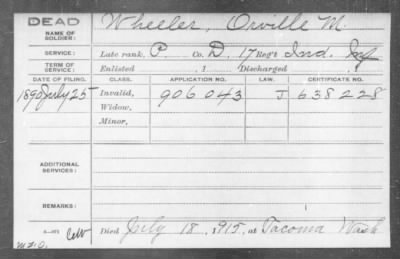 DEAD
NAME OF SOLDIER: Wheeler, Orville M.
SERVICE: Late rank, P. Co. D, 17 Reg't Ind. Inf
TERM OF SERVICE: Enlisted , 1 Discharged , 1
DATE OF FILING. CLASS. APPLICATION NO. LAW. CERTIFICATE NO.
1890 July 25 Invalid, 906043 J 638228
Widow,
Minor,
ADDITIONAL SERVICES:
REMARKS:
Died July 18, 1915, at Tacoma Wash